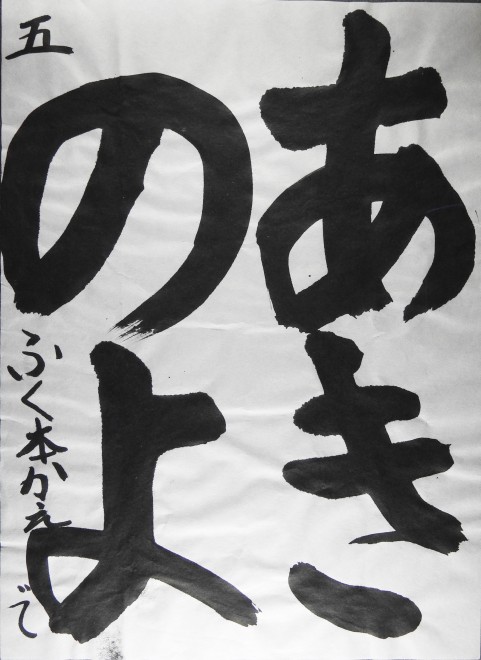 あき
のよ
五 ふく本かえで